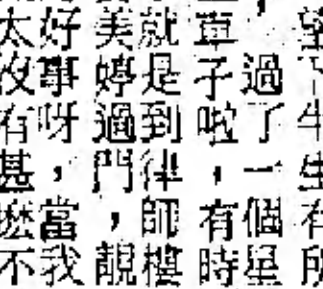 望下半生有所
，過了一個星
車子啦，有時
就是到律師樓
美婷過門，靚
好事呀，當我
太沒有甚麼不